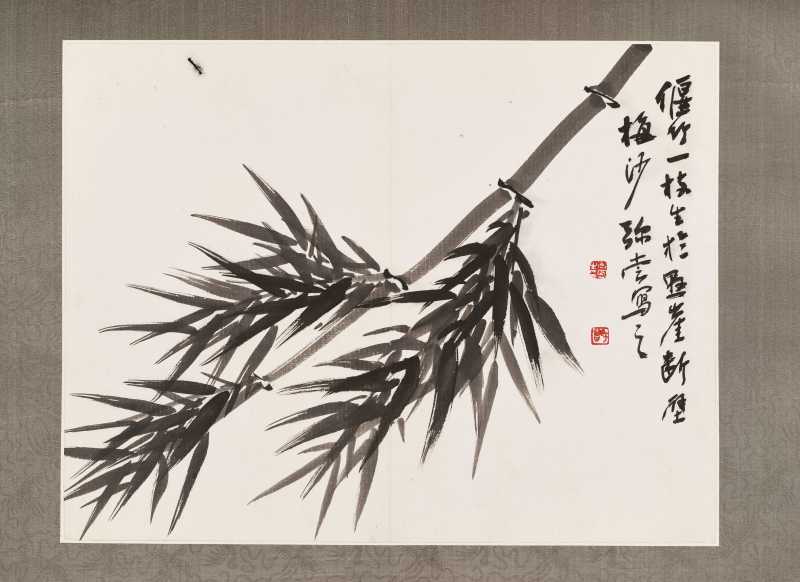 偃竹一枝生於懸崖断壁
梅沙弥雲写之